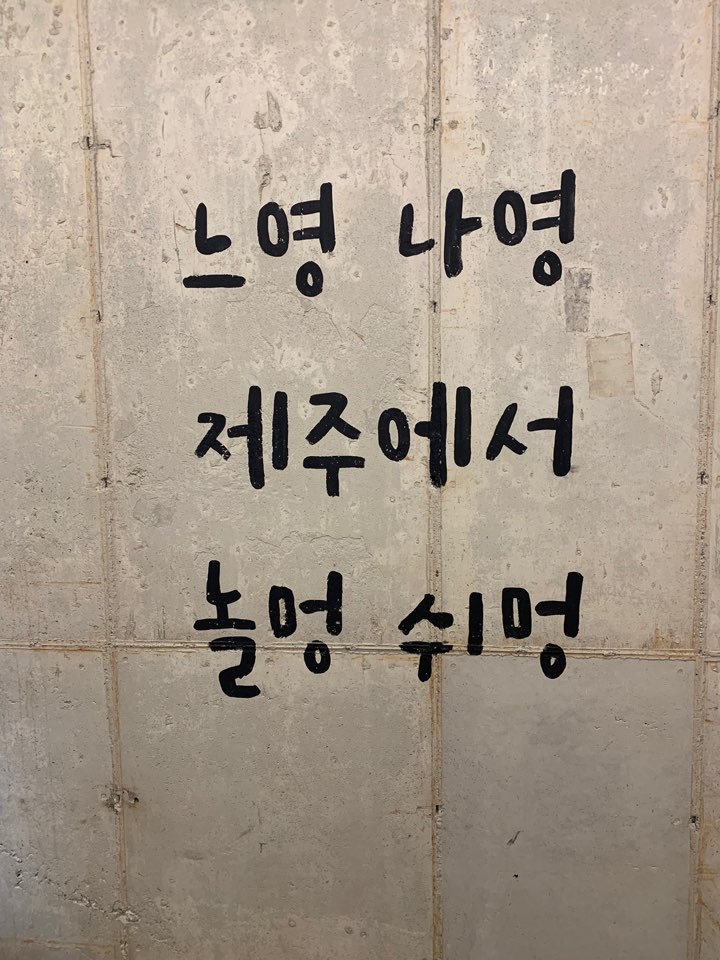 느영 나영
제주에서
놀멍 쉬멍